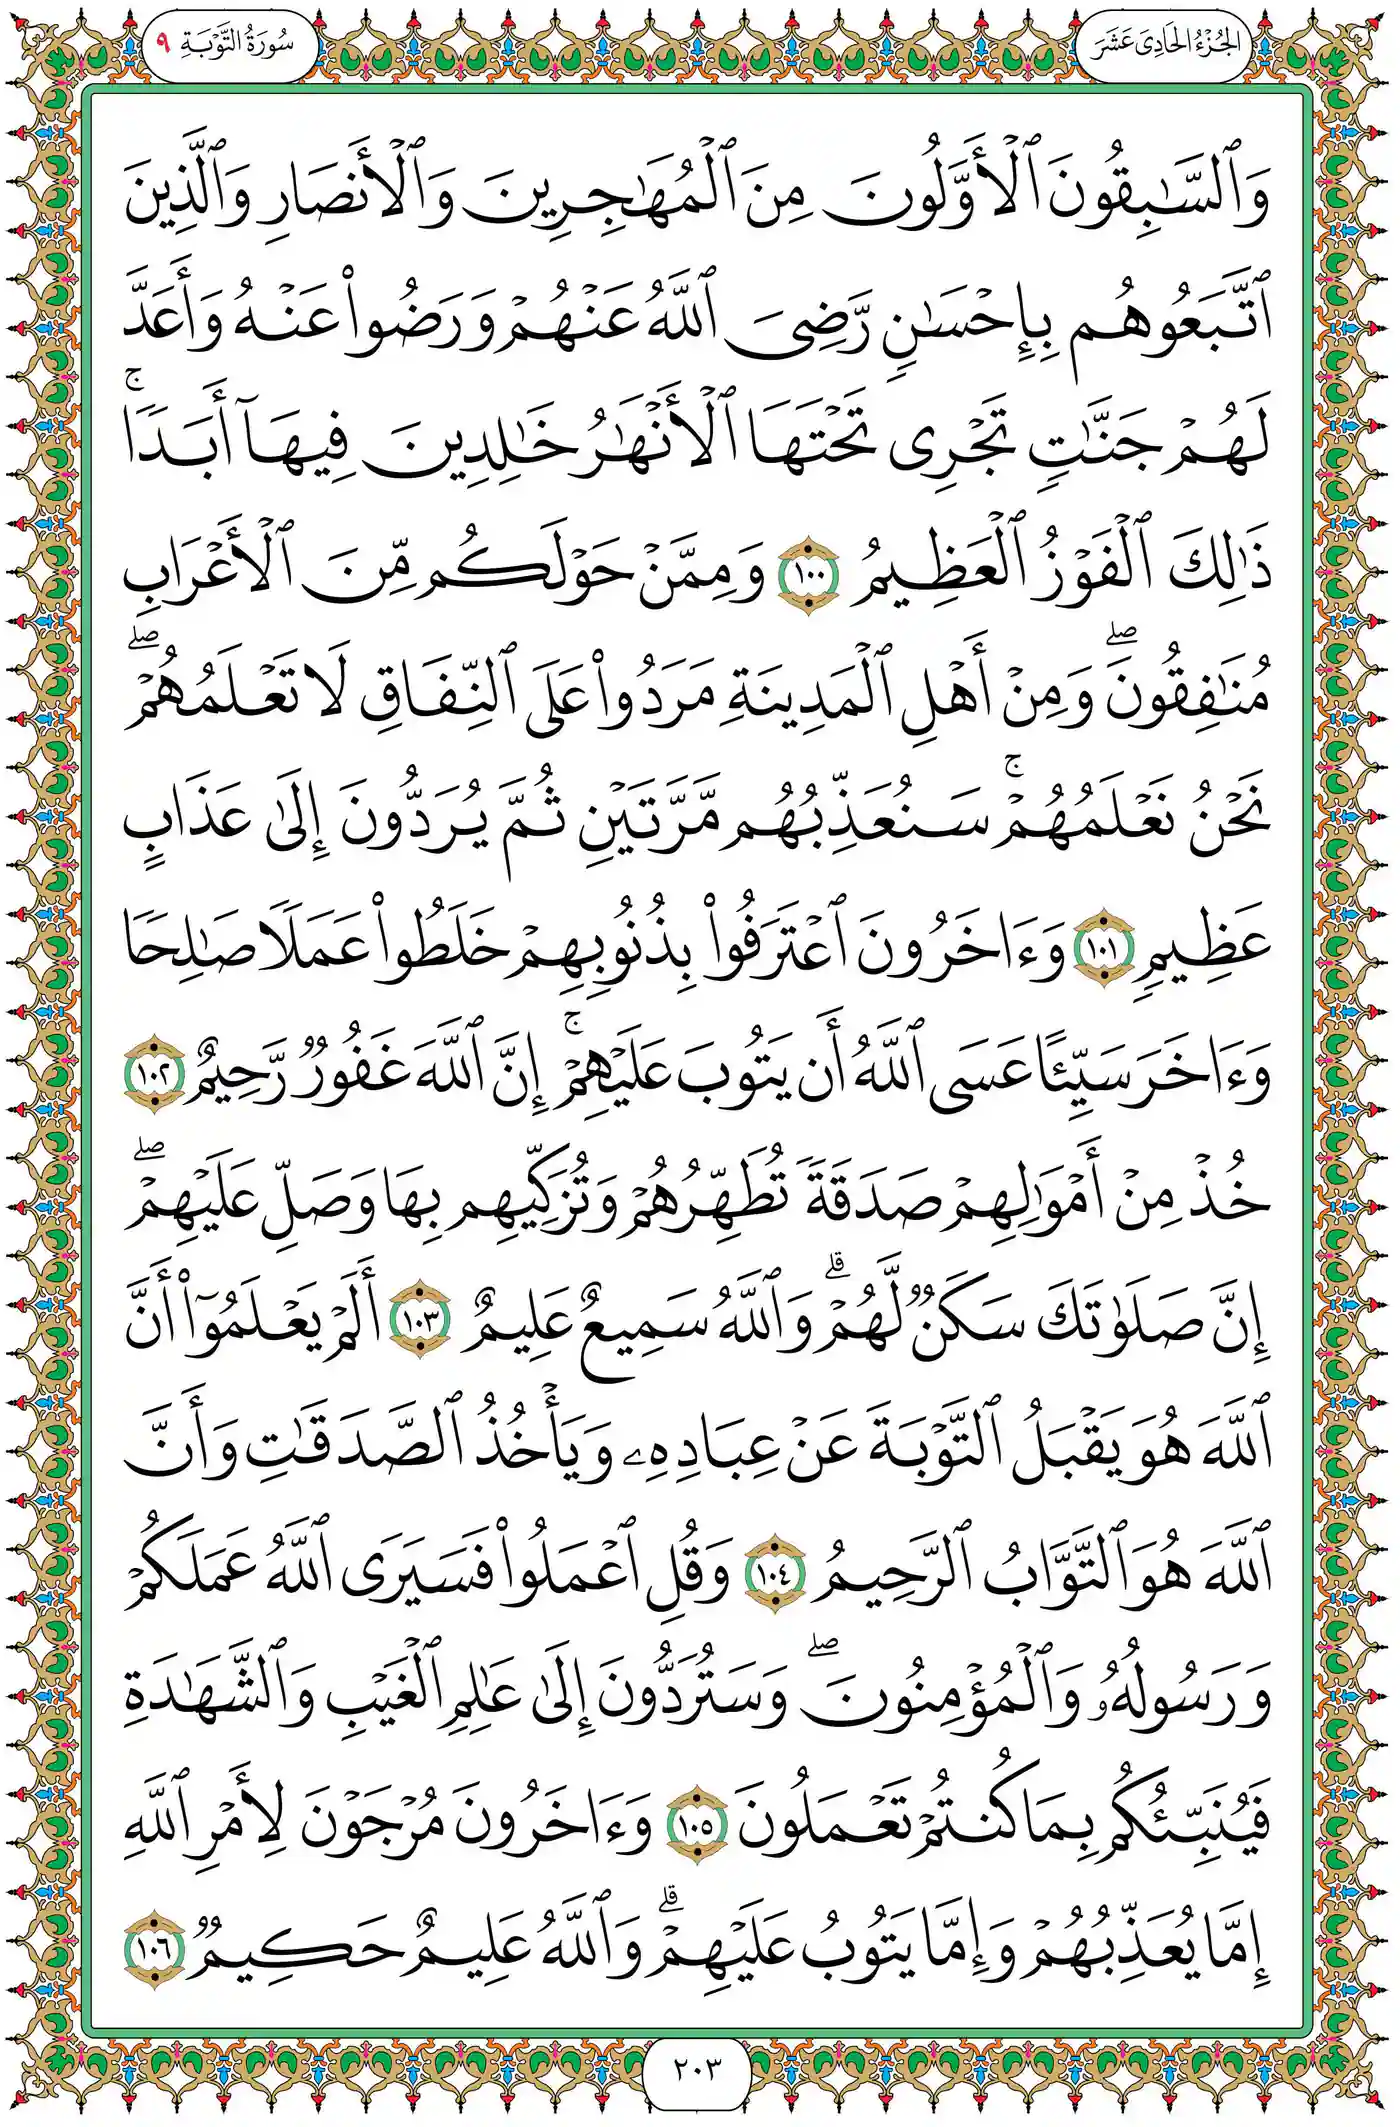 الجُزْءُ الحَادِىَ عَشَرَ
سُورَةُ التَّوْبَةِ ٩
وَٱلسَّـٰبِقُونَ ٱلْأَوَّلُونَ مِنَ ٱلْمُهَـٰجِرِينَ وَٱلْأَنصَارِ وَٱلَّذِينَ
ٱتَّبَعُوهُم بِإِحْسَـٰنٍ رَّضِىَ ٱللَّهُ عَنْهُمْ وَرَضُوا۟ عَنْهُ وَأَعَدَّ
لَهُمْ جَنَّـٰتٍ تَجْرِى تَحْتَهَا ٱلْأَنْهَـٰرُ خَـٰلِدِينَ فِيهَآ أَبَدًا ۚ
ذَٰلِكَ ٱلْفَوْزُ ٱلْعَظِيمُ ١٠٠ وَمِمَّنْ حَوْلَكُم مِّنَ ٱلْأَعْرَابِ
مُنَـٰفِقُونَ ۖ وَمِنْ أَهْلِ ٱلْمَدِينَةِ مَرَدُوا۟ عَلَى ٱلنِّفَاقِ لَا تَعْلَمُهُمْ ۖ
نَحْنُ نَعْلَمُهُمْ ۚ سَنُعَذِّبُهُم مَّرَّتَيْنِ ثُمَّ يُرَدُّونَ إِلَىٰ عَذَابٍ
عَظِيمٍ ١٠١ وَءَاخَرُونَ ٱعْتَرَفُوا۟ بِذُنُوبِهِمْ خَلَطُوا۟ عَمَلًا صَـٰلِحًا
وَءَاخَرَ سَيِّئًا عَسَى ٱللَّهُ أَن يَتُوبَ عَلَيْهِمْ ۚ إِنَّ ٱللَّهَ غَفُورٌ رَّحِيمٌ ١٠٢
خُذْ مِنْ أَمْوَٰلِهِمْ صَدَقَةً تُطَهِّرُهُمْ وَتُزَكِّيهِم بِهَا وَصَلِّ عَلَيْهِمْ ۖ
إِنَّ صَلَوٰتَكَ سَكَنٌ لَّهُمْ ۗ وَٱللَّهُ سَمِيعٌ عَلِيمٌ ١٠٣ أَلَمْ يَعْلَمُوٓا۟ أَنَّ
ٱللَّهَ هُوَ يَقْبَلُ ٱلتَّوْبَةَ عَنْ عِبَادِهِۦ وَيَأْخُذُ ٱلصَّدَقَـٰتِ وَأَنَّ
ٱللَّهَ هُوَ ٱلتَّوَّابُ ٱلرَّحِيمُ ١٠٤ وَقُلِ ٱعْمَلُوا۟ فَسَيَرَى ٱللَّهُ عَمَلَكُمْ
وَرَسُولُهُۥ وَٱلْمُؤْمِنُونَ ۖ وَسَتُرَدُّونَ إِلَىٰ عَـٰلِمِ ٱلْغَيْبِ وَٱلشَّهَـٰدَةِ
فَيُنَبِّئُكُم بِمَا كُنتُمْ تَعْمَلُونَ ١٠٥ وَءَاخَرُونَ مُرْجَوْنَ لِأَمْرِ ٱللَّهِ
إِمَّا يُعَذِّبُهُمْ وَإِمَّا يَتُوبُ عَلَيْهِمْ ۗ وَٱللَّهُ عَلِيمٌ حَكِيمٌ ١٠٦
٢٠٣